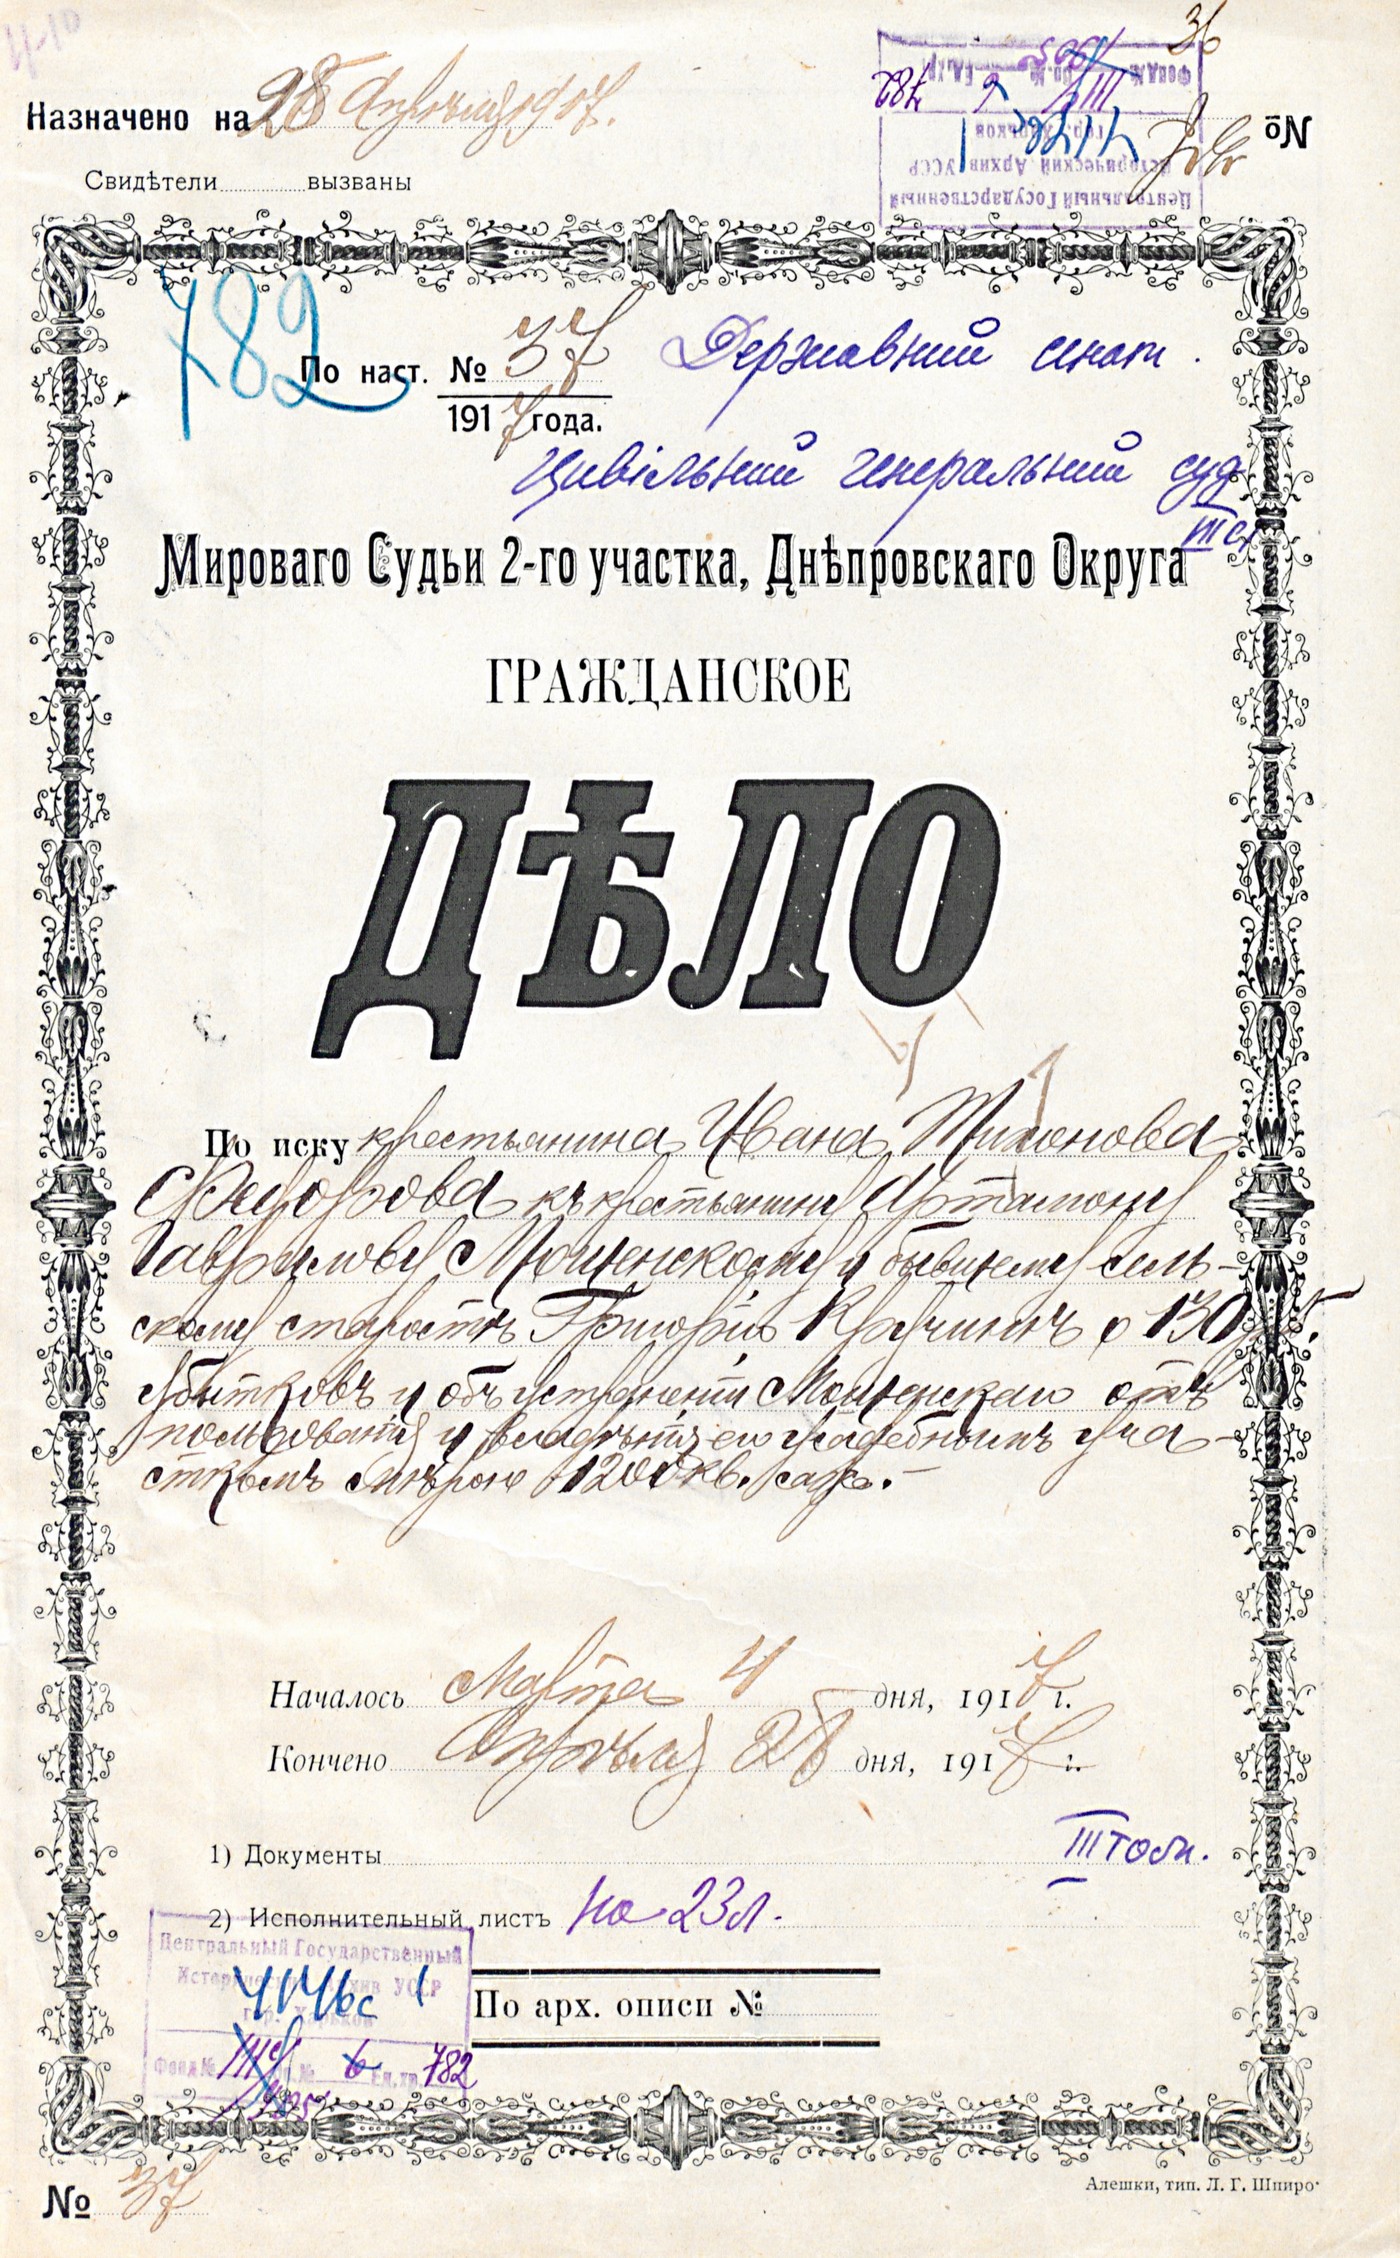 4-10
36
Назначено на 28 Апрѣля 1917.
№
782
Свидѣтели вызваны
Центральный Государственный
Исторический Архив УССР
гор. Харьков
Фонд № Оп. № 6 Ед. хр. 782
782
По наст. № 37
1917 года.
Державний сенат.
Цивільний генеральний суд
III с.
Мироваго Судьи 2-го участка, Днѣпровскаго Округа
ГРАЖДАНСКОЕ
ДѢЛО
По иску крестьянина Ивана Тихонова
къ крестьянину Артамону
Гаврилову Мощенскому и бывшему сель-
скому старостѣ Григорію о 130 руб.
убытковъ и объ устраненіи Мощенскаго отъ
пользованія и владѣнія его усадебнымъ уча-
сткомъ мѣрою 1200 кв. саж.-
Началось Марта 4 дня, 1917 г.
Кончено Апрѣля 28 дня, 1917 г.
1) Документы
2) Исполнительный листъ на 23 л.
Центральный Государственный
Исторический Архив УССР
гор. Харьков
Фонд № № 6 Ед. хр. 782
По арх. описи №
№ 37
Алешки, тип. Л. Г. Шпиро